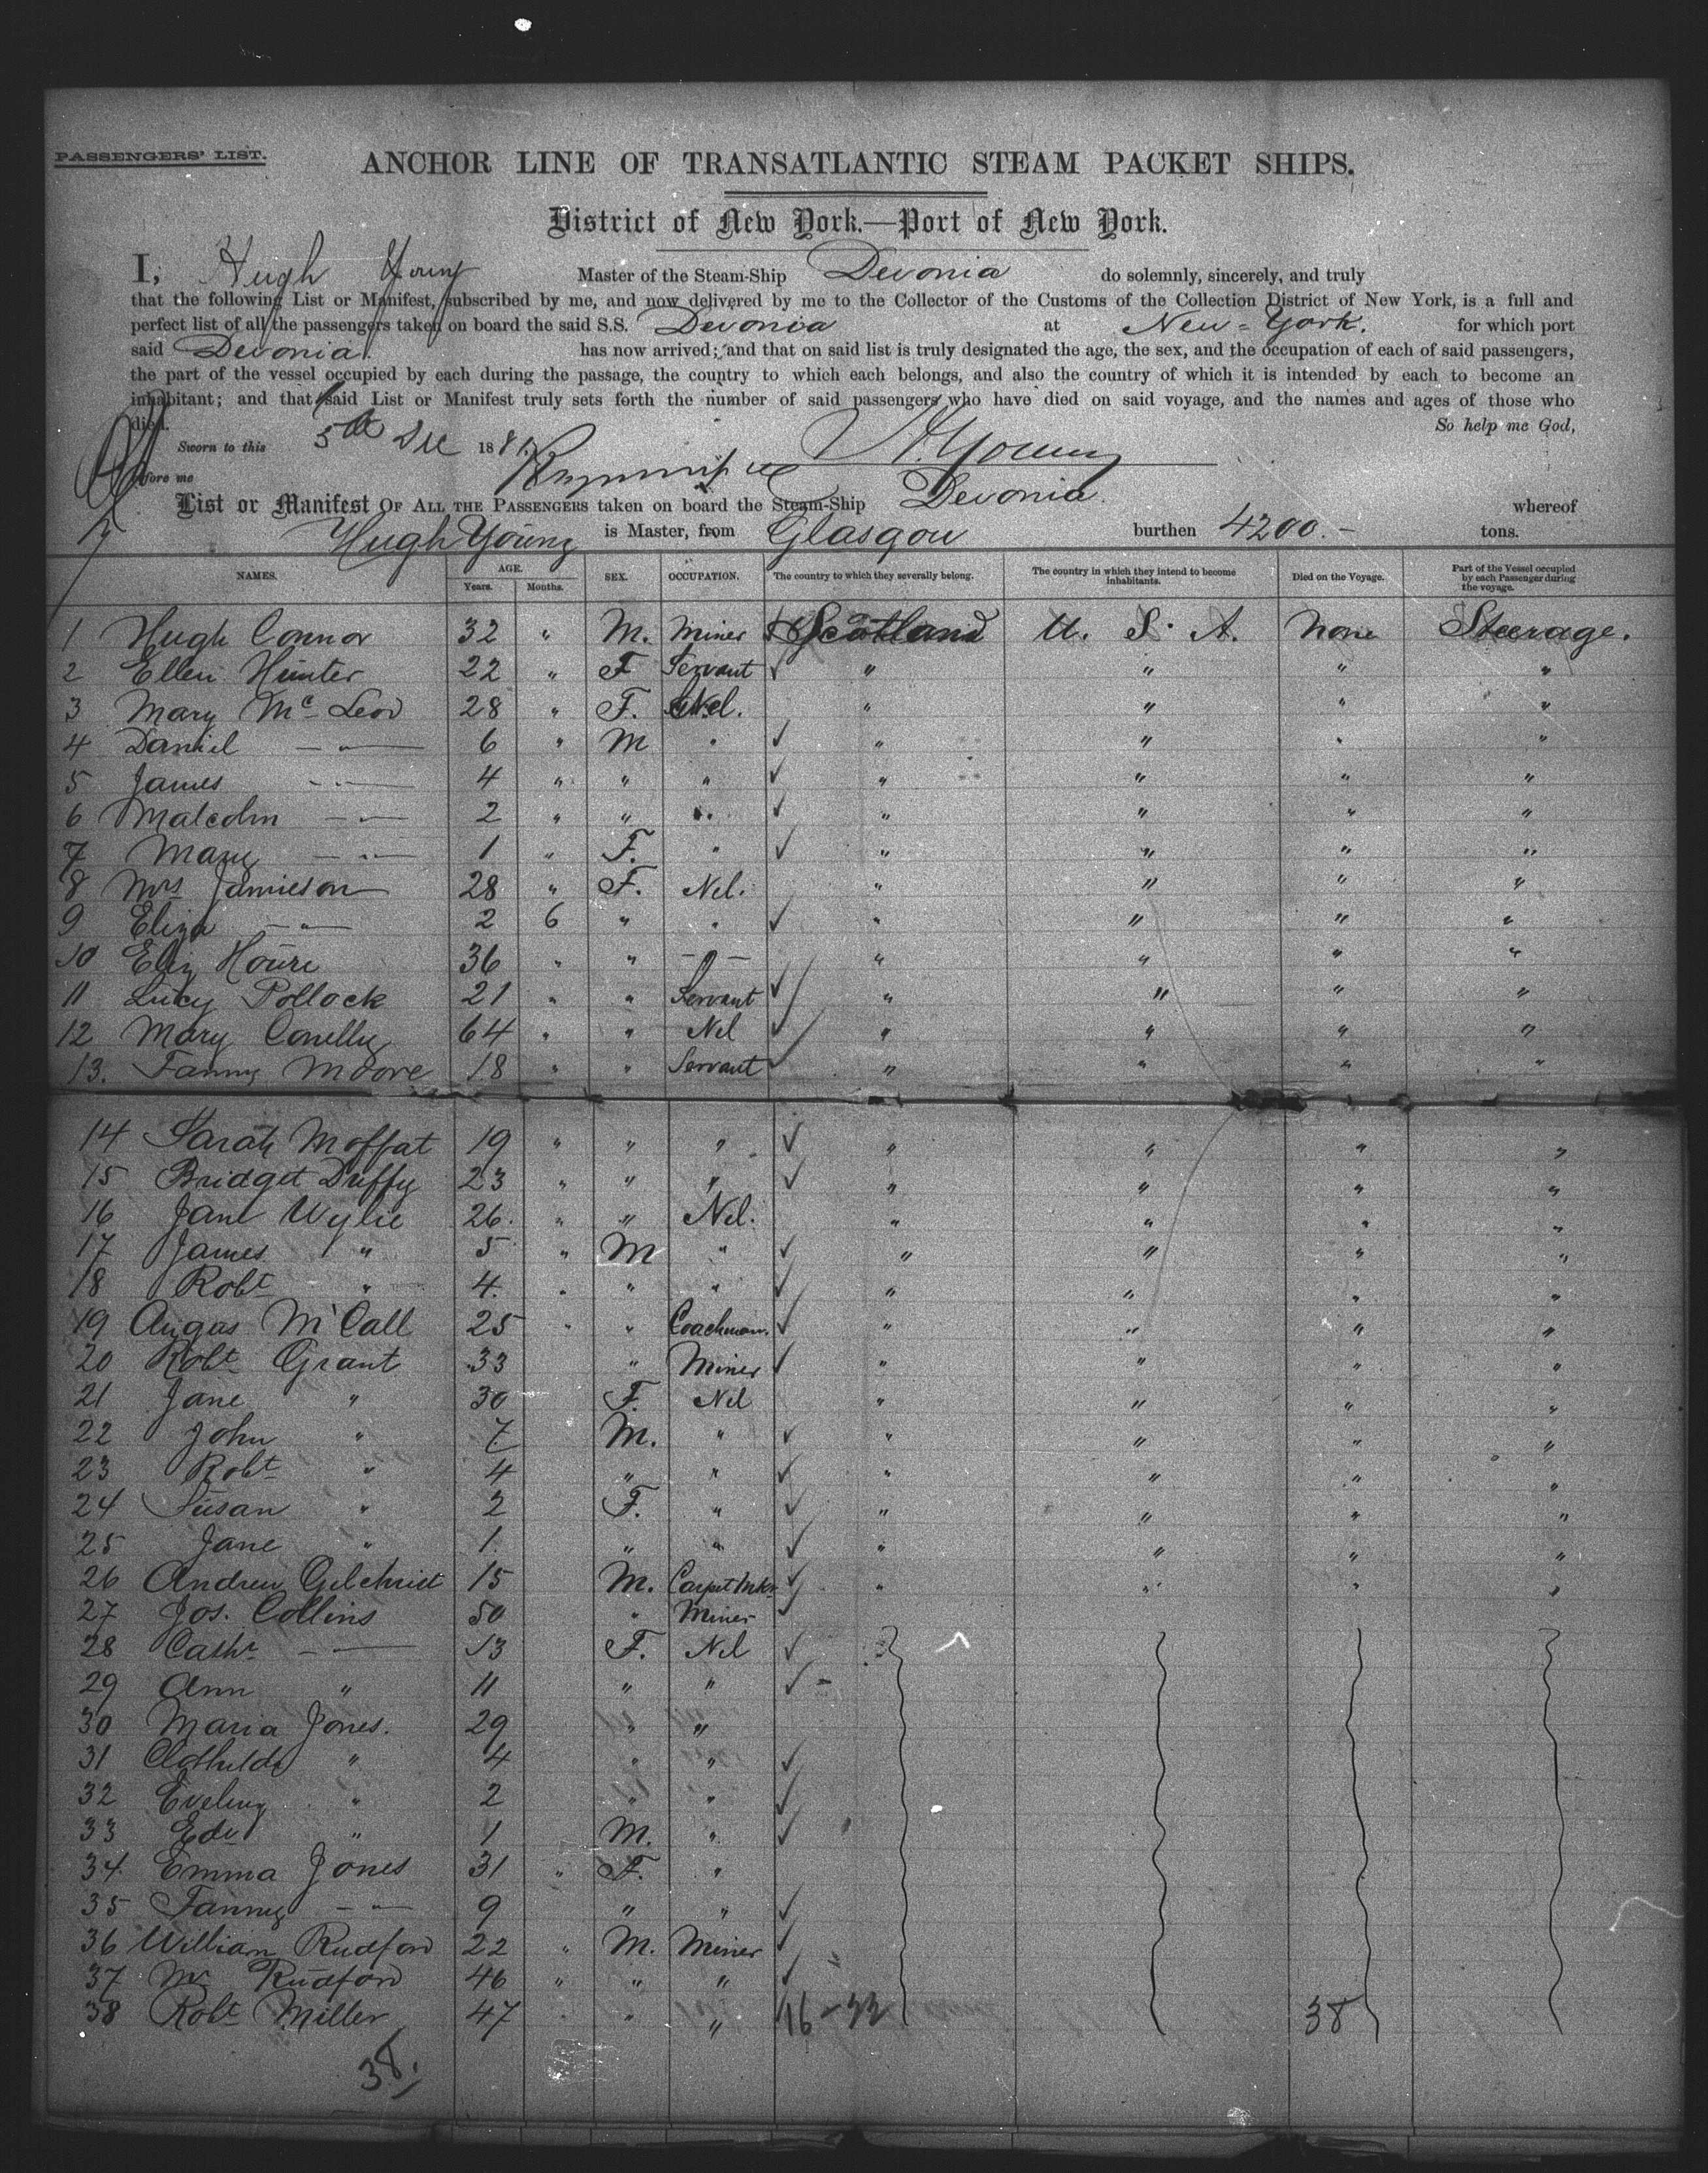 PASSENGERS' LIST.
ANCHOR LINE OF TRANSATLANTIC STEAM PACKET SHIPS.
District of New York.—Port of New York.
I, Hugh Young Master of the Steam-Ship Devonia do solemnly, sincerely, and truly
that the following List or Manifest, subscribed by me, and now delivered by me to the Collector of the Customs of the Collection District of New York, is a full and
perfect list of all the passengers taken on board the said S.S. Devonia at New-York. for which port
said Devonia. has now arrived; and that on said list is truly designated the age, the sex, and the occupation of each of said passengers,
the part of the vessel occupied by each during the passage, the country to which each belongs, and also the country of which it is intended by each to become an
inhabitant; and that said List or Manifest truly sets forth the number of said passengers who have died on said voyage, and the names and ages of those who
died. So help me God,
Sworn to this 5th Dec 188 H. Young
before me
List or Manifest OF ALL THE PASSENGERS taken on board the Steam-Ship Devonia. whereof
Hugh Young is Master, from Glasgow burthen 4200.- tons.
NAMES. AGE. Years. Months. SEX. OCCUPATION. The country to which they severally belong. The country in which they intend to become inhabitants. Died on the Voyage. Part of the Vessel occupied by each Passenger during the voyage.
1 Hugh Connor 32 " M. Miner Scotland U. S. A. None Steerage.
2 Ellen Hunter 22 " F Servant ✓ " " " "
3 Mary Mc Leod 28 " F. Nel. " " " "
4 Daniel — " — 6 " M " ✓ " " " "
5 James — " — 4 " " " ✓ " " " "
6 Malcolm — " — 2 " " " ✓ " " " "
7 Mary — " — 1 " F. " ✓ " " " "
8 Mrs Jamieson 28 " F. Nel. " " " "
9 Eliza — " — 2 6 " " ✓ " " " "
10 Eliz Houre 36 " " — " — " " " "
11 Lucy Pollock 21 " " Servant ✓ " " " "
12 Mary Conelly 64 " " Nel ✓ " " " "
13. Fanny Moore 18 " " Servant ✓ " " " "
14 Sarah Moffat 19 " " " ✓ " " " "
15 Bridget Duffy 23 " " " ✓ " " " "
16 Jane Wylie 26. " " Nel. " " " "
17 James " 5 " M " ✓ " " " "
18 Robt " 4. " " " ✓ " " " "
19 Angus McCall 25 " " Coachman. ✓ " " " "
20 Robt Grant 33 " Miner ✓ " " " "
21 Jane " 30 F. Nel " " " "
22 John " 7 M. " ✓ " " " "
23 Robt " 4 " " ✓ " " " "
24 Susan " 2 F. " ✓ " " " "
25 Jane " 1. " " ✓ " " " "
26 Andrew Gilchrist 15 M. Carpet Mkr ✓ " " " "
27 Jos. Collins 50 " Miner ✓
28 Cathr — 13 F. Nel ✓
29 Ann " 11 " " ✓
30 Maria Jones. 29 " "
31 Clothilde " 4 " " ✓
32 Eveling " 2 " " ✓
33 Edw " 1 M. " ✓
34 Emma Jones 31 " F. "
35 Fanny — " — 9 " " ✓
36 William Rudford 22 " M. Miner ✓
37 Mr Rudford 46 " " " ✓
38 Robt Miller 47 " " " 16-22 38
38.